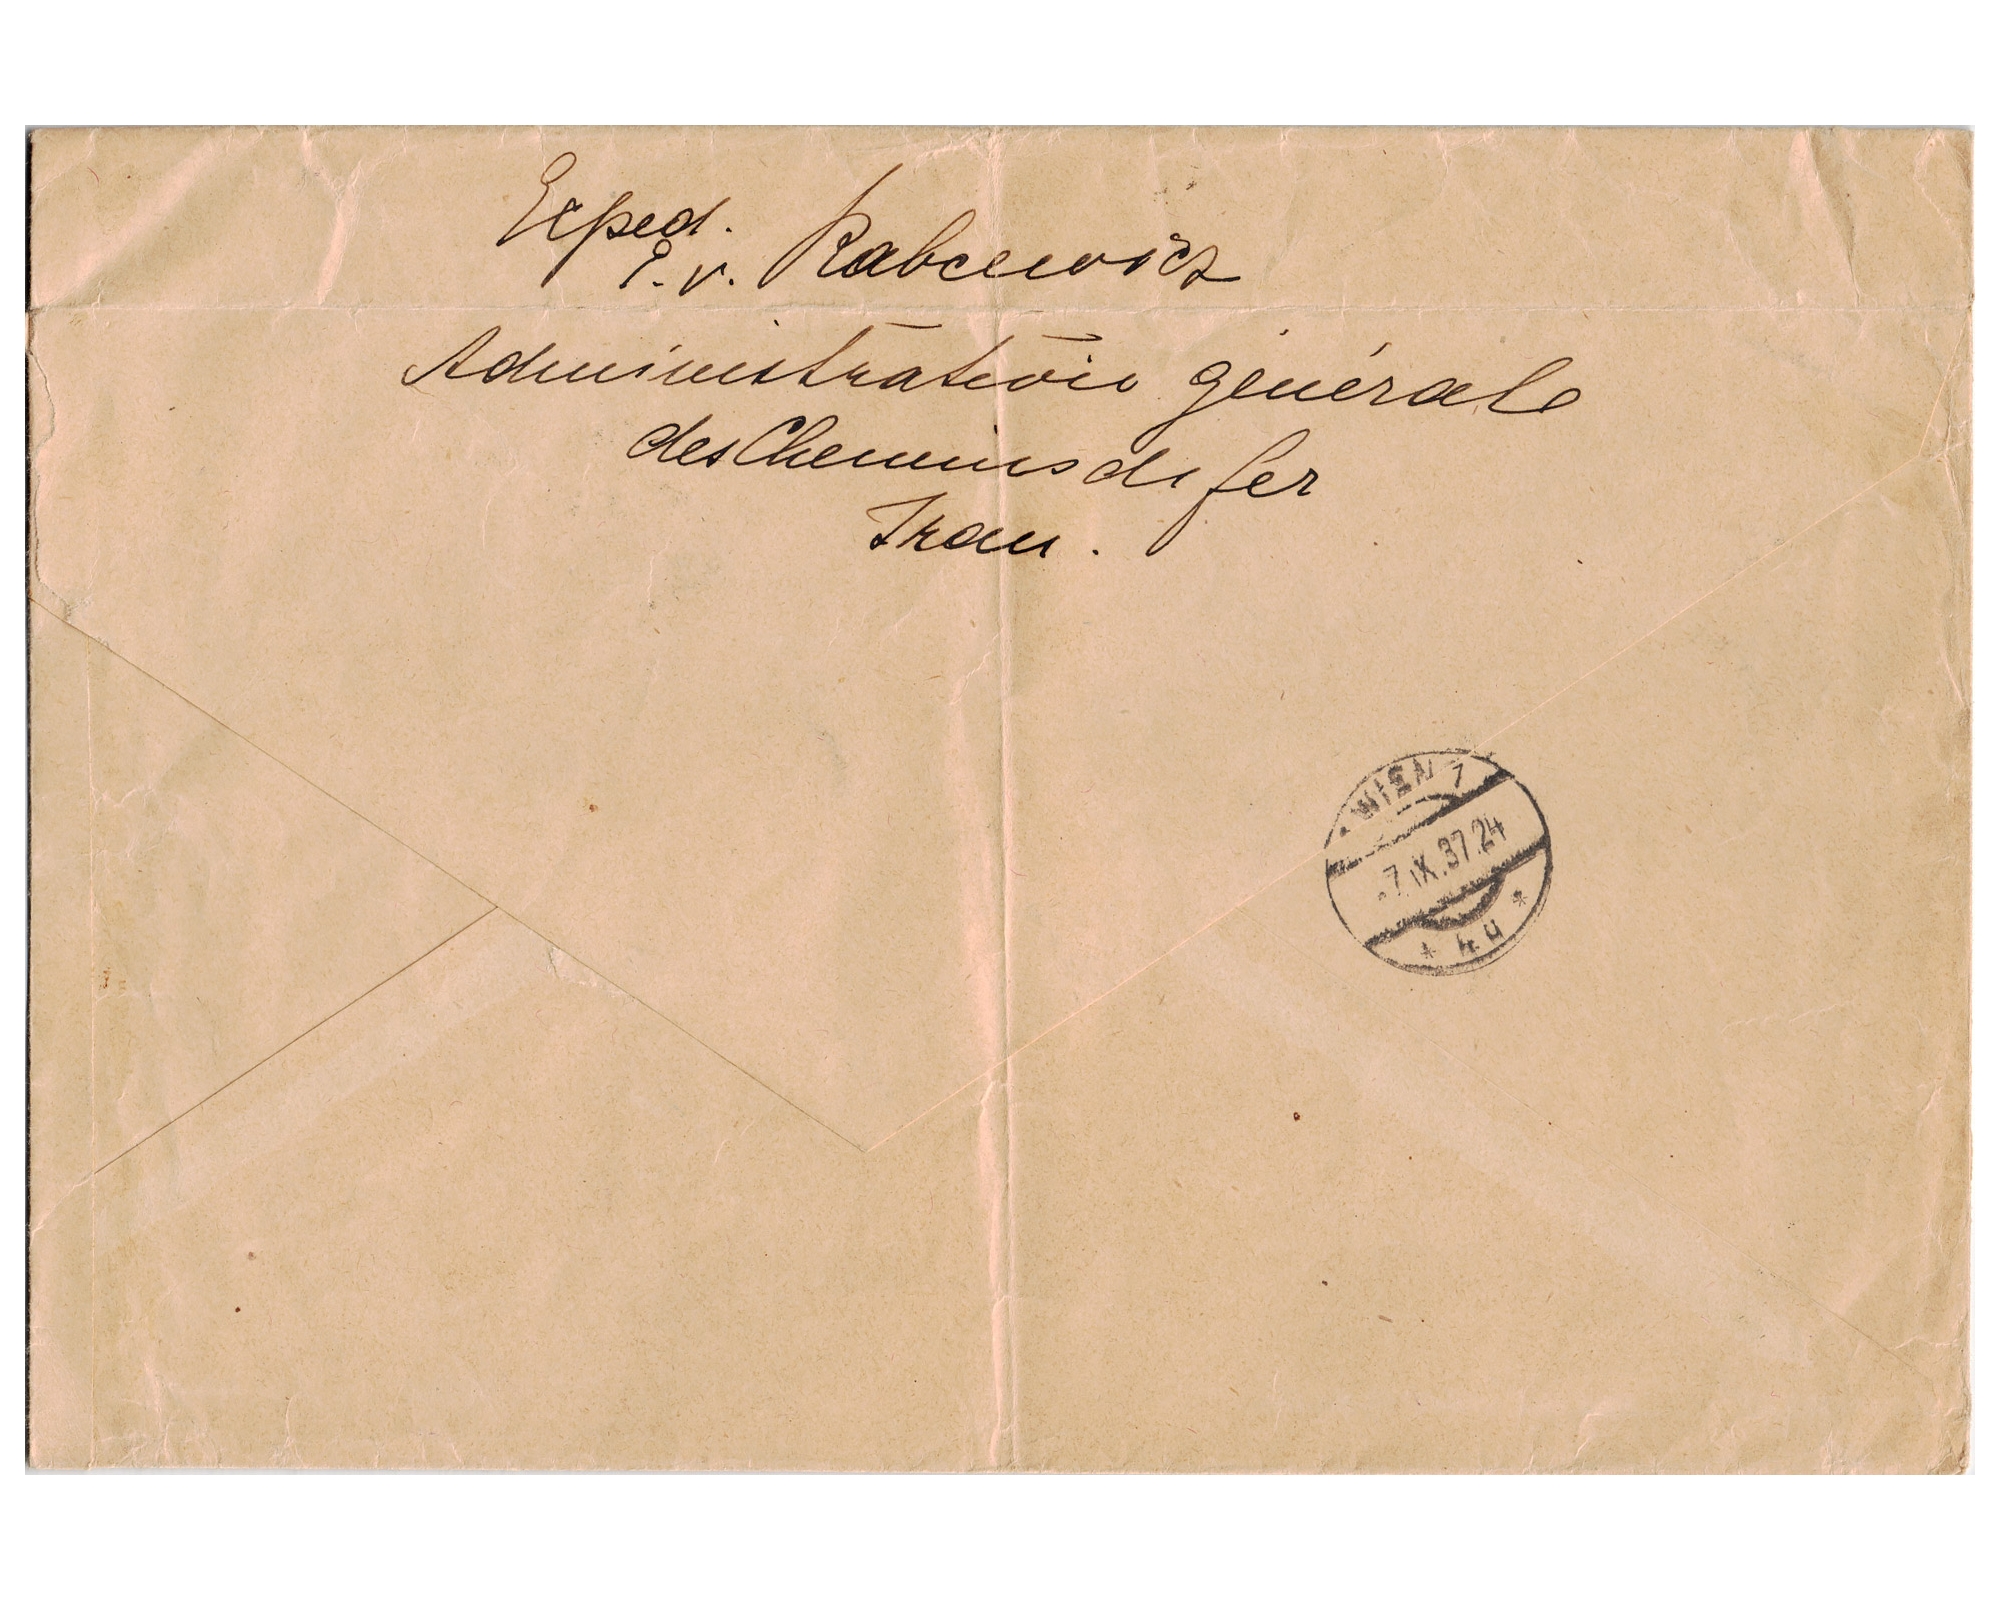 Exped.
E. v. Rabcewicz
Administration générale
des Chemins de fer
Iran.
WIEN 1
-7.IX.37.24
* 4u *